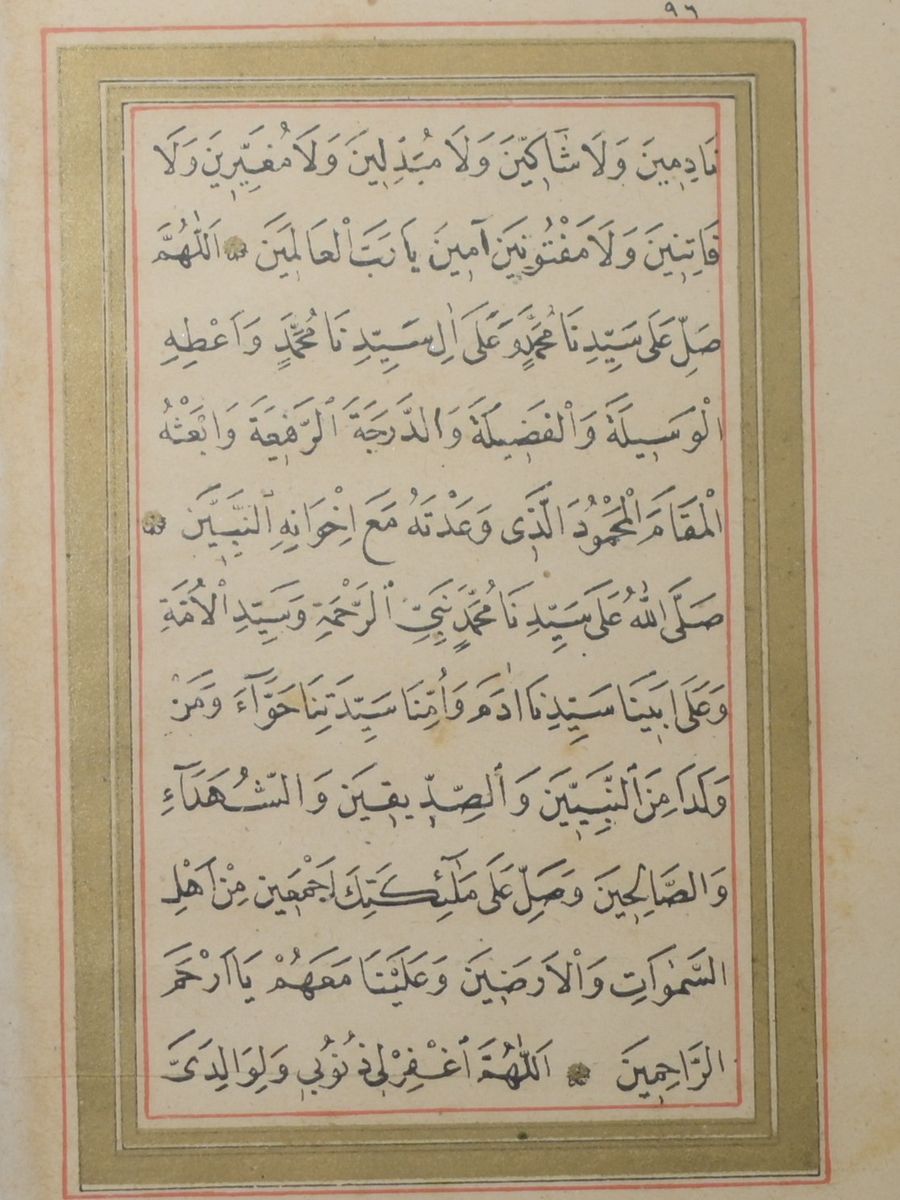 ٩٦
نَادِمِينَ وَلَا شَاكِّينَ وَلَا مُبَدِّلِينَ وَلَا مُغَيِّرِينَ وَلَا
فَاتِنِينَ وَلَا مَفْتُونِينَ آمِينَ يَا رَبَّ الْعَالَمِينَ اَللّٰهُمَّ
صَلِّ عَلَى سَيِّدِنَا مُحَمَّدٍ وَعَلَى اٰلِ سَيِّدِنَا مُحَمَّدٍ وَاَعْطِهِ
الْوَسِيلَةَ وَالْفَضِيلَةَ وَالدَّرَجَةَ الرَّفِيعَةَ وَابْعَثْهُ
الْمَقَامَ الْمَحْمُودَ الَّذِى وَعَدْتَهُ مَعَ اِخْوَانِهِ النَّبِيِّينَ
صَلَّى اللّٰهُ عَلَى سَيِّدِنَا مُحَمَّدٍ نَبِيِّ الرَّحْمَةِ وَسَيِّدِ الْاُمَّةِ
وَعَلَى اَبِينَا سَيِّدِنَا اٰدَمَ وَاُمِّنَا سَيِّدَتِنَا حَوَّآءَ وَمَنْ
وَلَدَا مِنَ النَّبِيِّينَ وَالصِّدِّيقِينَ وَالشُّهَدَآءِ
وَالصَّالِحِينَ وَصَلِّ عَلَى مَلٰٓئِكَتِكَ اَجْمَعِينَ مِنْ اَهْلِ
السَّمٰوَاتِ وَالْاَرَضِينَ وَعَلَيْنَا مَعَهُمْ يَا اَرْحَمَ
الرَّاحِمِينَ اَللّٰهُمَّ اغْفِرْ لِى ذُنُوبِي وَلِوَالِدَىَّ